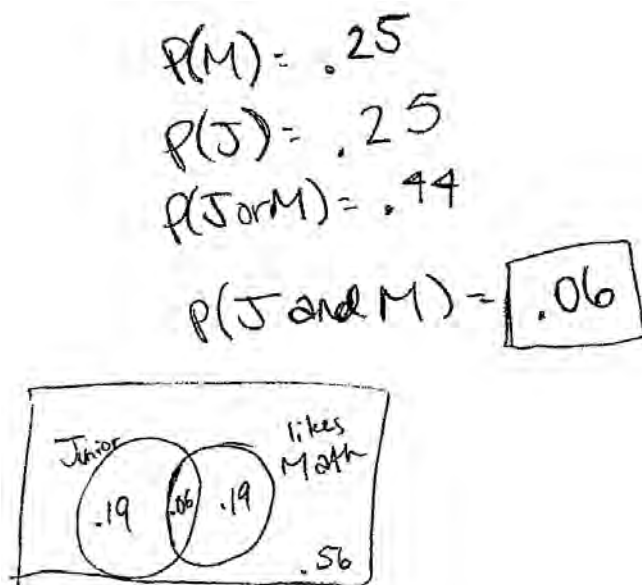 P(M) = .25
P(J) = .25
P(J or M) = .44
P(J and M) = .06
Junior
likes
Math
.19 .06 .19
.56